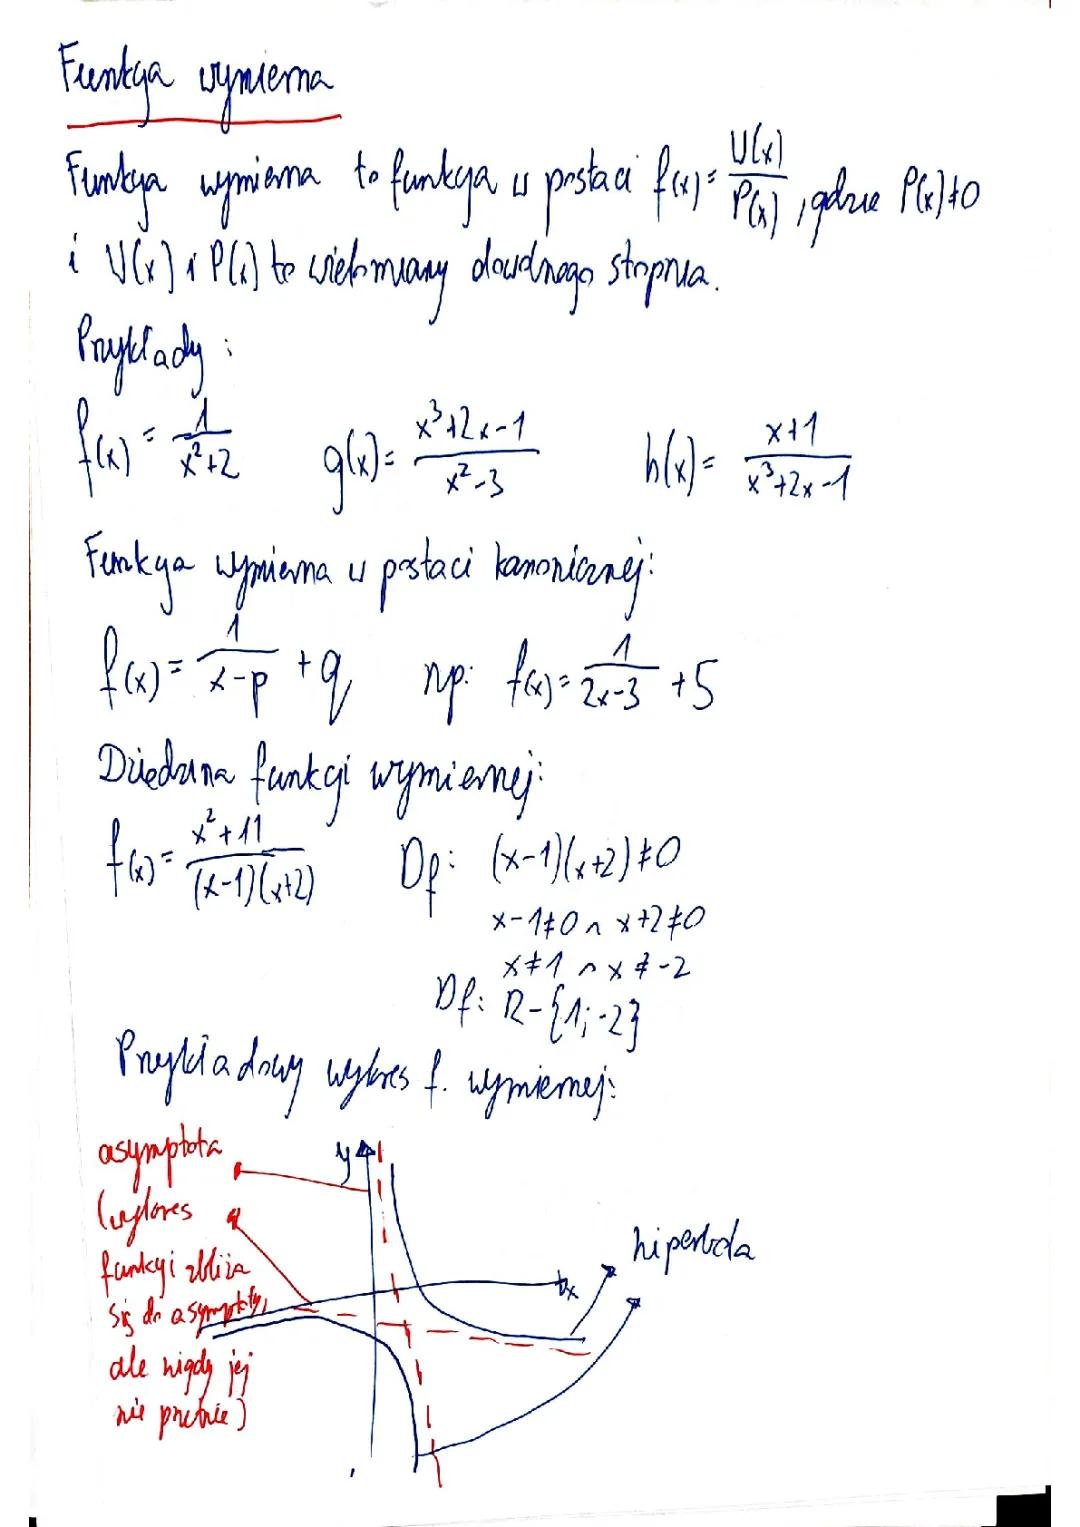 Funkcja wymierna
Funkcja wymierna to funkcja w postaci f(x) = U(x)/P(x), gdzie P(x)≠0
i U(x) i P(x) to wielomiany dowolnego stopnia.
Przykłady:
f(x) = 1/(x²+2)  g(x) = (x³+2x-1)/(x²-3)  h(x) = (x+1)/(x³+2x-1)
Funkcja wymierna w postaci kanonicznej:
f(x) = 1/(x-p) + q  np: f(x) = 1/(2x-3) + 5
Dziedzina funkcji wymiernej:
f(x) = (x²+11)/((x-1)(x+2))  Df: (x-1)(x+2)≠0
x-1≠0 ∧ x+2≠0
x≠1 ∧ x≠-2
Df: R-{1;-2}
Przykładowy wykres f. wymiernej:
asymptota
(wykres
funkcji zbliża
się do asymptoty,
ale nigdy jej
nie przetnie)
y
x
hiperbola